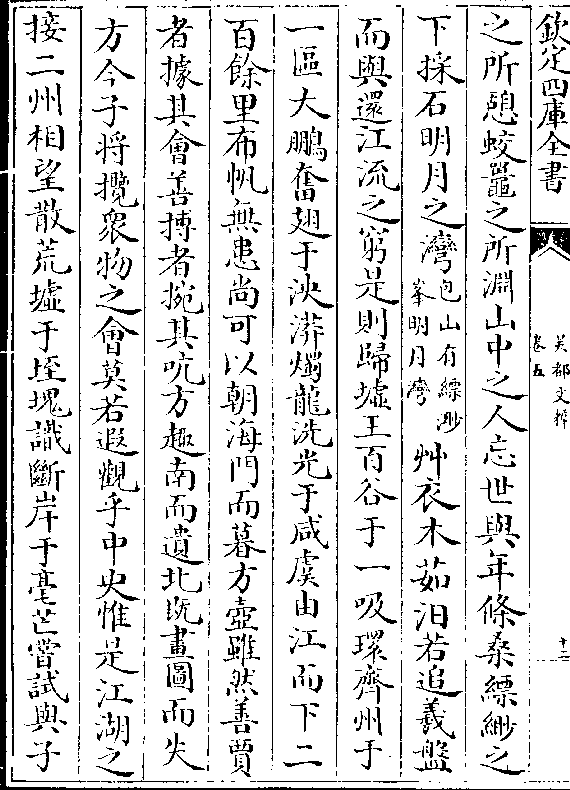 欽定四庫全書
吳都文粹
卷五
十二
之所憩蛟鼍之所淵山中之人忘世與年條桑縹緲之
下採石明月之灣包山有縹渺峯明月灣艸衣木茹汨若追羲盤
而與還江流之窮是則歸墟王百谷于一吸環齊州于
一區大鵬奮翅于泱漭燭龍洗光于咸虞由江而下二
百餘里布帆無恙尚可以朝海門而暮方壺雖然善賈
者據其會善搏者扼其吭方趣南而遺北既畫圖而失
方今子將攬衆物之會莫若遐觀乎中央惟是江湖之
接二州相望散荒墟于垤塊識斷岸于毫芒嘗試與子